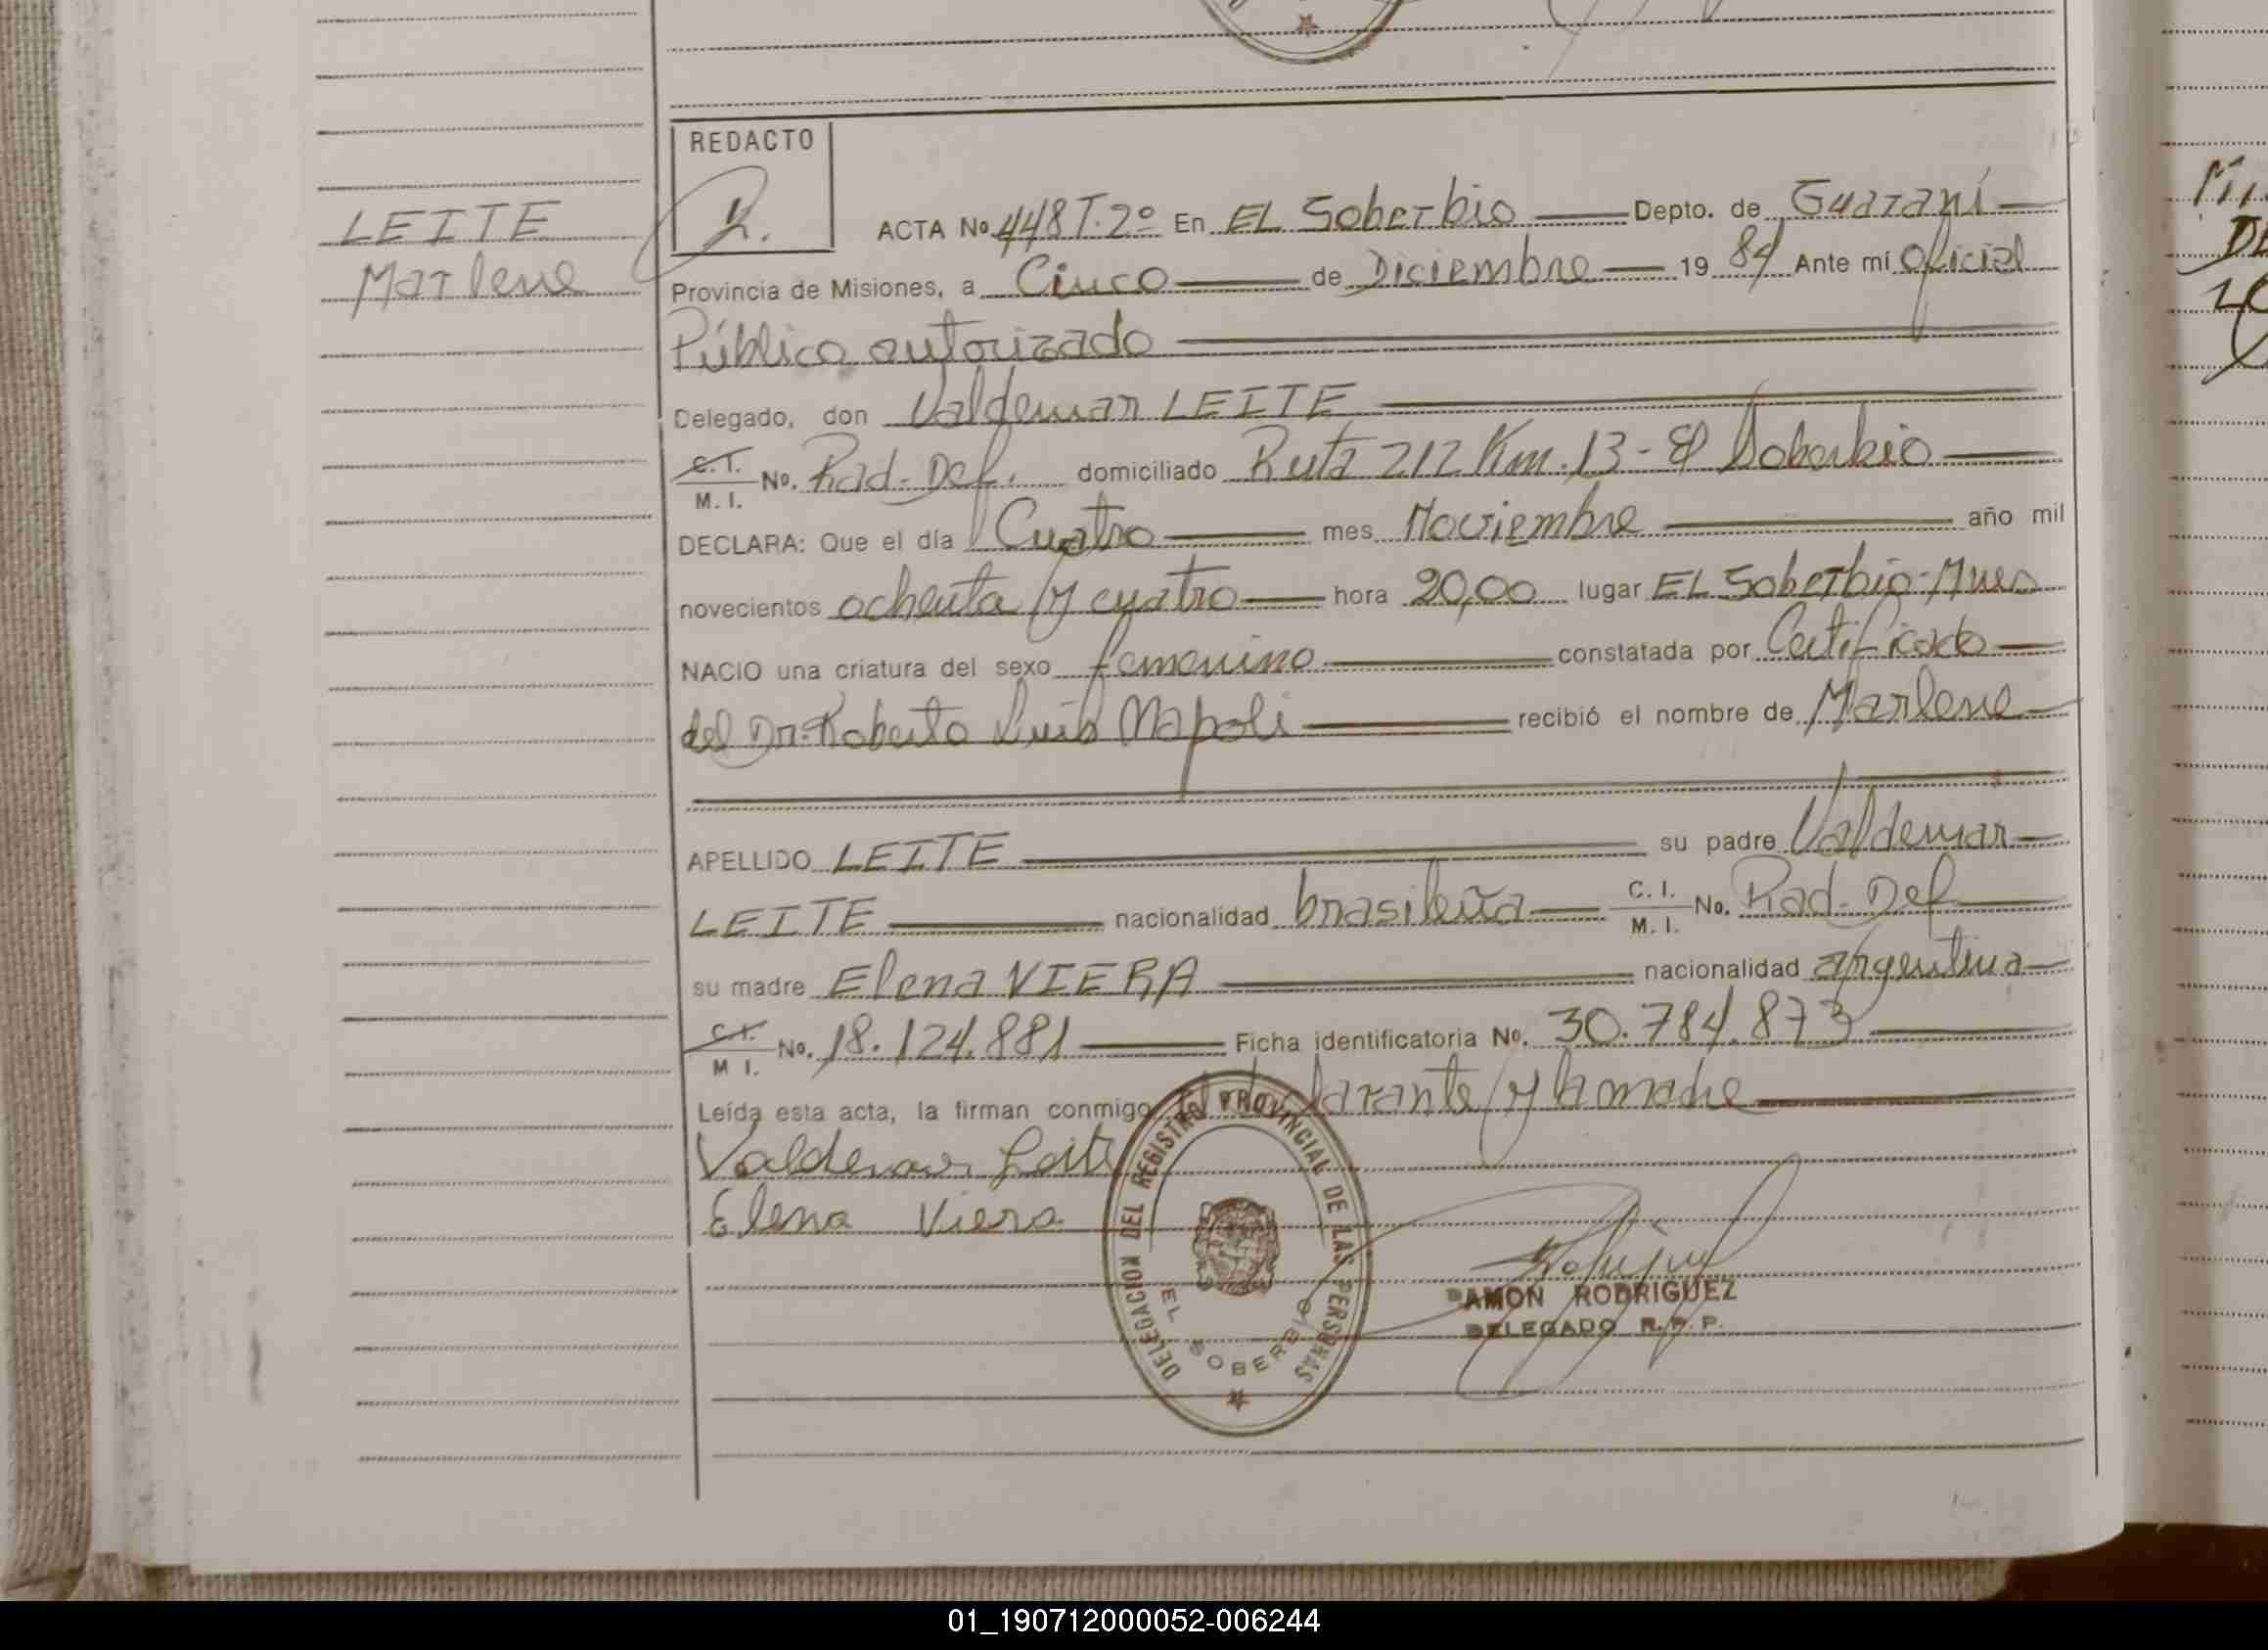 LEITE
Marlene
REDACTO
ACTA Nº 448 T. 2º En EL Soberbio Depto. de Guaraní
Provincia de Misiones, a Cinco de Diciembre 19 84 Ante mí Oficial
Público autorizado
Delegado, don Valdemar LEITE
C.I. M.I. No. Rad. Def. domiciliado Ruta 212 Km. 13 - El Soberbio
DECLARA: Que el día Cuatro mes Noviembre año mil
novecientos ochenta y cuatro hora 20,00 lugar EL Soberbio - Mnes
NACIO una criatura del sexo femenino constatada por Certificado
del Dr. Roberto Luis Napoli recibió el nombre de Marlene
APELLIDO LEITE su padre Valdemar
LEITE nacionalidad brasileña C.I. M.I. No. Rad. Def
su madre Elena VIERA nacionalidad argentina
C.I. M I. No. 18.124.881 Ficha identificatoria No. 30.784.873
Leída esta acta, la firman conmigo el declarante y la madre
Valdemar Leite
Elena Viera
DELEGACION DEL REGISTRO PROVINCIAL DE LAS PERSONAS
EL SOBERBIO
RAMON RODRIGUEZ
DELEGADO R. P. P.
01_190712000052-006244